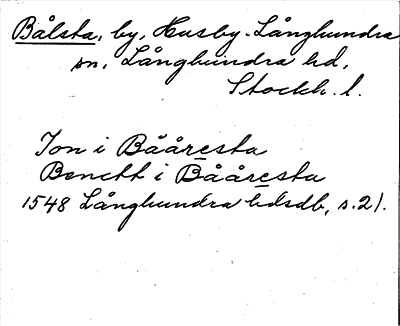 Bålsta, by, Husby-Långhundra
sn, Långhundra hd,
Stockh. l.
Jon i Bååresta
Benctt i Bååresta
1548 Långhundra hdsdb, s. 21.